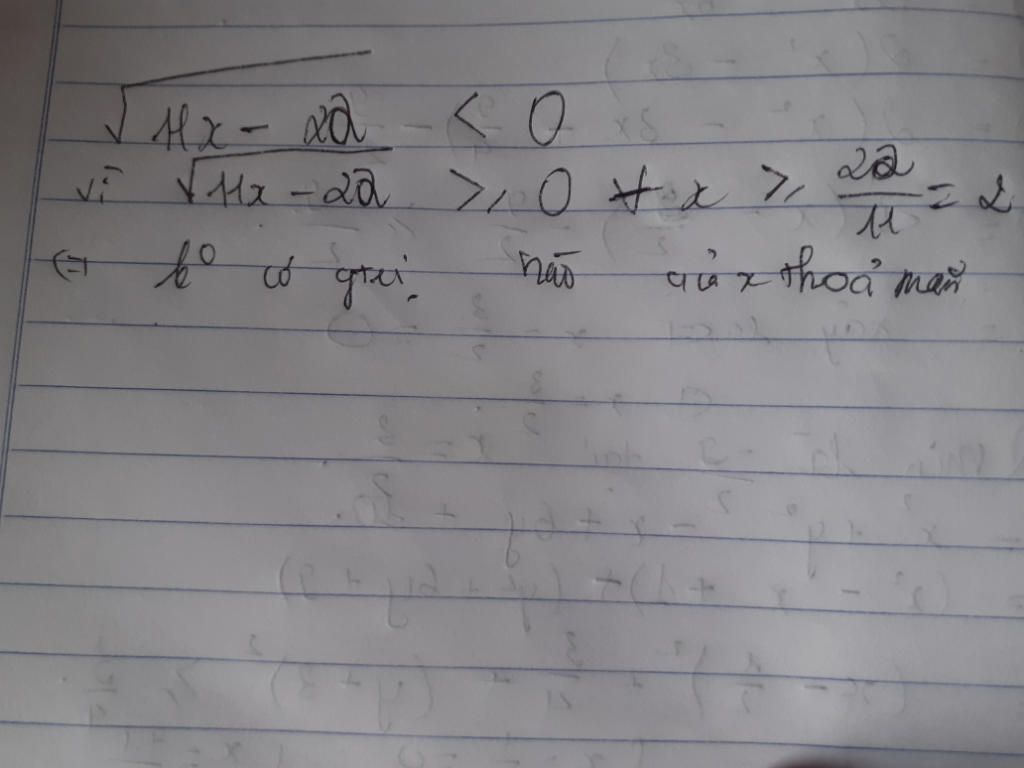 √11x - 22 < 0
vì √11x - 22 ≥ 0 ∀ x ≥ 22/11 = 2
⇔ k° có gtrị nào của x thoả mãn